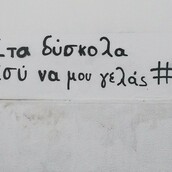 Στα δύσκολα
εσύ να μου γελάς #